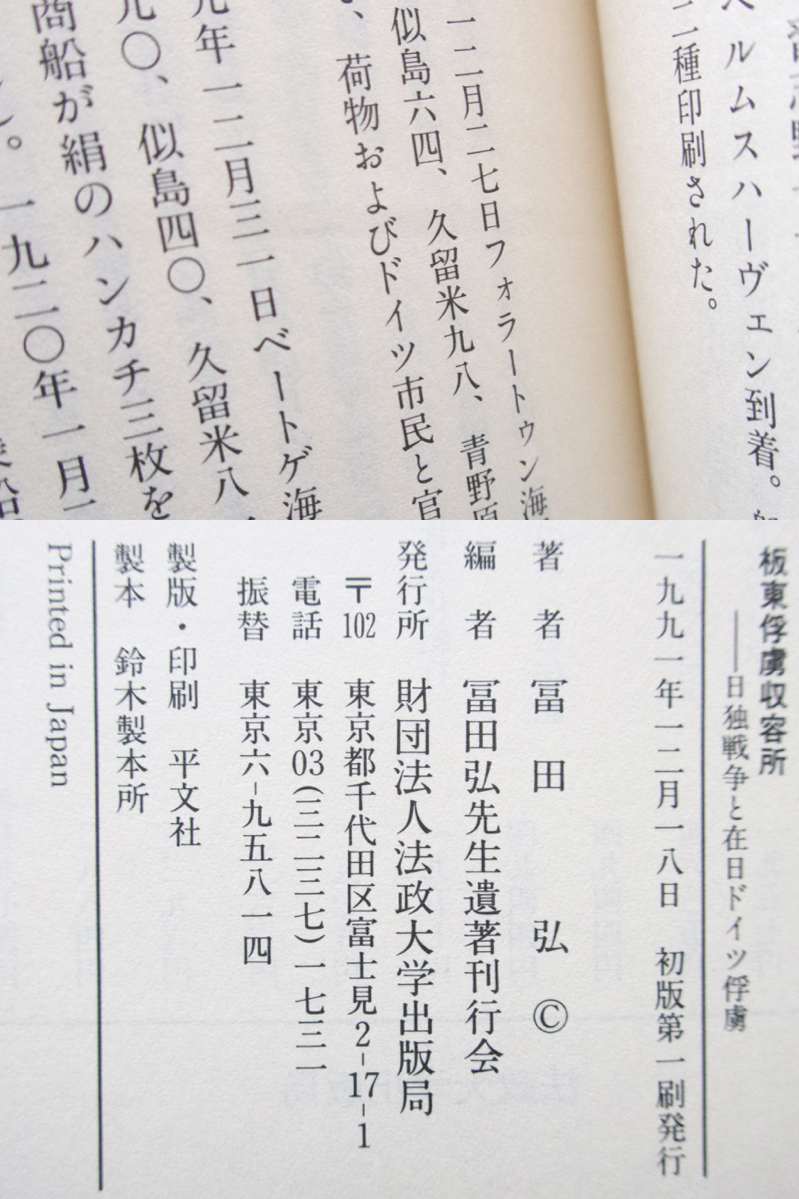 ヘルムスハーヴェン到着。
二種印刷された。
一二月二七日フォラートゥン海
似島六四、久留米九八、青野原
、荷物およびドイツ市民と官
元年一二月三一日ベートゲ海
九〇、似島四〇、久留米八
商船が絹のハンカチ三枚を
。一九二〇年一月
乗船
板東俘虜収容所
――日独戦争と在日ドイツ俘虜
一九九一年一二月一八日 初版第一刷発行
著者 冨田 弘 ©
編者 冨田弘先生遺著刊行会
発行所 財団法人法政大学出版局
〒102 東京都千代田区富士見2-17-1
電話 東京03(三二三七)一七三一
振替 東京六-九五八一四
製版・印刷 平文社
製本 鈴木製本所
Printed in Japan